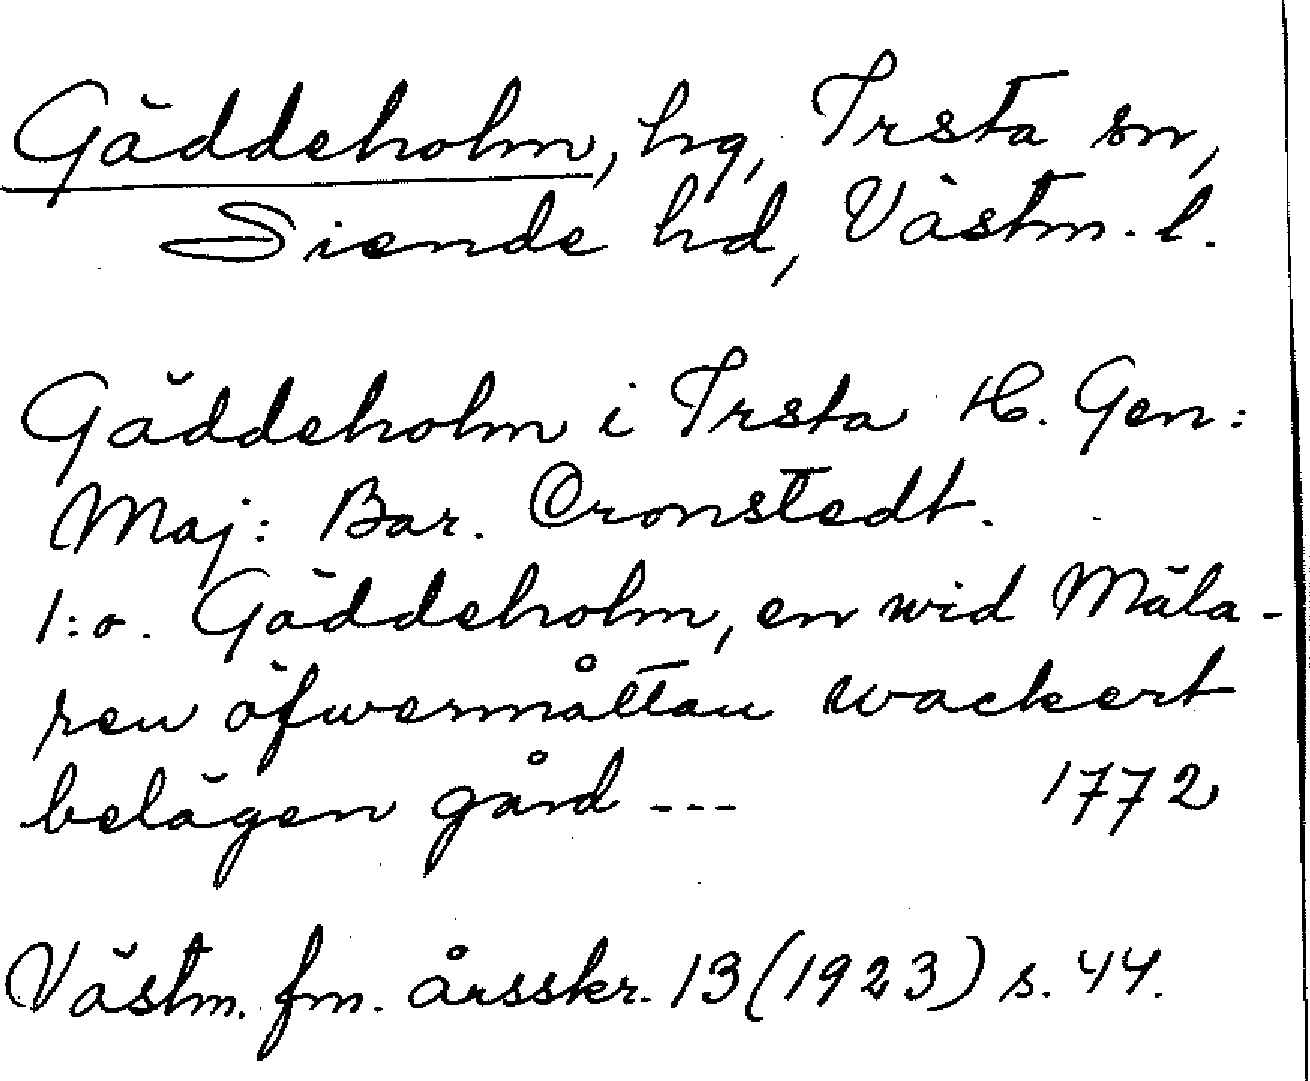 Gäddeholm, hg, Irsta sn,
Siende hd, Västm. l.
Gäddeholm i Irsta H. Gen:
Maj: Bar. Cronstedt.
1:o. Gäddeholm, en wid Mäla-
ren öfwermåttan wackert
belägen gård --- 1772
Västm. fm. årsskr. 13 (1923) s. 44.